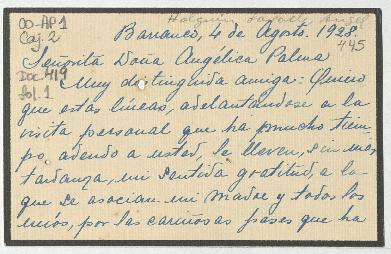 OO-AP1
Caj. 2
Doc. 419
Fol. 1
Holguín
445
Barranco, 4 de Agosto, 1938.
Señorita Doña Angélica Palma
Muy distinguida amiga: Quiero
que estas líneas, adelantandose a la
visita personal que ha mucho tiem-
po, adeudo a usted, le lleven, sin más
tardanza, mi sentida gratitud, a la
que se asocian mi madre y todos los
míos, por las cariñosas frases que ha